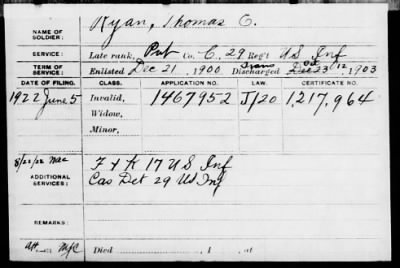 Ryan, Thomas C.
NAME OF SOLDIER:
SERVICE: Late rank, Pvt Co. C, 29 Reg't US Inf
TERM OF SERVICE: Enlisted Dec 21, 1900 Trans Discharged Oct 12, 1903
DATE OF FILING. CLASS. APPLICATION NO. CERTIFICATE NO.
1922 June 5 Invalid, 1467952 J/20 1,217,964
Widow,
Minor,
8/22/22 Mac
ADDITIONAL SERVICES: F & K 17 US Inf
Cas Det 29 US Inf
REMARKS:
MJC Died , 1 , at